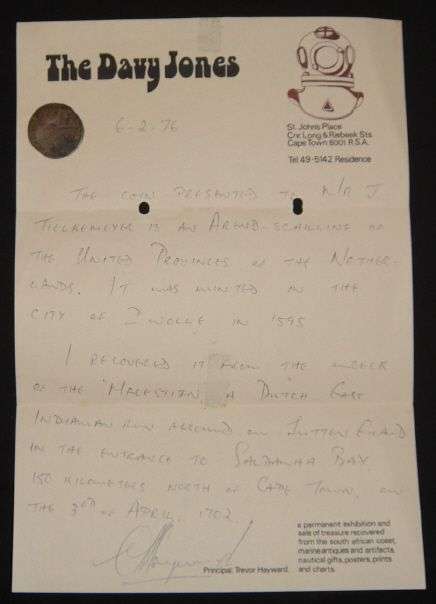 The Davy Jones
St. Johns Place
Cnr. Long & Riebeek Sts
Cape Town 8001 R.S.A.
Tel 49-5142 Residence
6-2-76
THE COIN PRESENTED TO MR J
IS AN AREND-SCHILLING OF
THE UNITED PROVINCES OF THE NETHER-
LANDS. IT WAS MINTED IN THE
CITY OF ZWOLLE IN 1595
I RECOVERED IT FROM THE WRECK
OF THE 'MERESTEIJN' A DUTCH EAST
INDIAMAN RUN AGROUND ON JUTTEN EILAND
IN THE ENTRANCE TO SALDANHA BAY
150 KILOMETERS NORTH OF CAPE TOWN, ON
THE 3RD OF APRIL, 1702
a permanent exhibition and
sale of treasure recovered
from the south african coast,
marine antiques and artifacts,
nautical gifts, posters, prints
and charts.
Principal: Trevor Hayward.